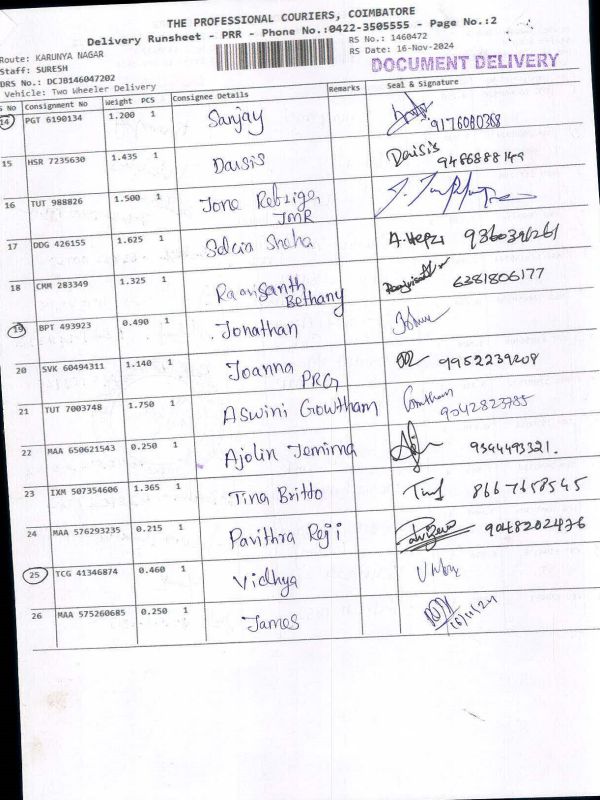 THE PROFESSIONAL COURIERS, COIMBATORE
Delivery Runsheet - PRR - Phone No.:0422-3505555 - Page No.:2
Route: KARUNYA NAGAR
RS No.: 1460472
Staff: SURESH
RS Date: 16-Nov-2024
DRS No.: DCJB146047202
DOCUMENT DELIVERY
Vehicle: Two Wheeler Delivery
S No Consignment No Weight PCS Consignee Details Remarks Seal & Signature
14 PGT 6190134 1.200 1 Sanjay 9176080368
15 HSR 7235630 1.435 1 Daisis Daisis 9486888149
16 TUT 988826 1.500 1 Jone
JMR
17 DDG 426155 1.625 1 Selcia Sneha
18 CRM 283349 1.325 1 6381806177
Bethany
19 BPT 493923 0.490 1 Jonathan
20 SVK 60494311 1.140 1 Joanna 9952239208
PRG
21 TUT 7003748 1.750 1 Aswini Gowtham Gowtham
9042823785
22 MAA 650621543 0.250 1 Ajolin Jemima 9344493321.
23 IXM 507354606 1.365 1 Tina Britto Tina 8667658545
24 MAA 576293235 0.215 1 Pavithra Reji 9048202476
25 TCG 41346874 0.460 1 Vidhya
26 MAA 575260685 0.250 1 James 16/11/24